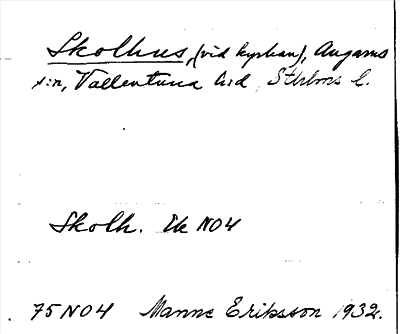 Skolhus, (vid kyrkan), Angarns
s:n, Vallentuna h:d, Sthlms l.
Skolh. Ek NO4
75NO4 Manne Eriksson 1932.